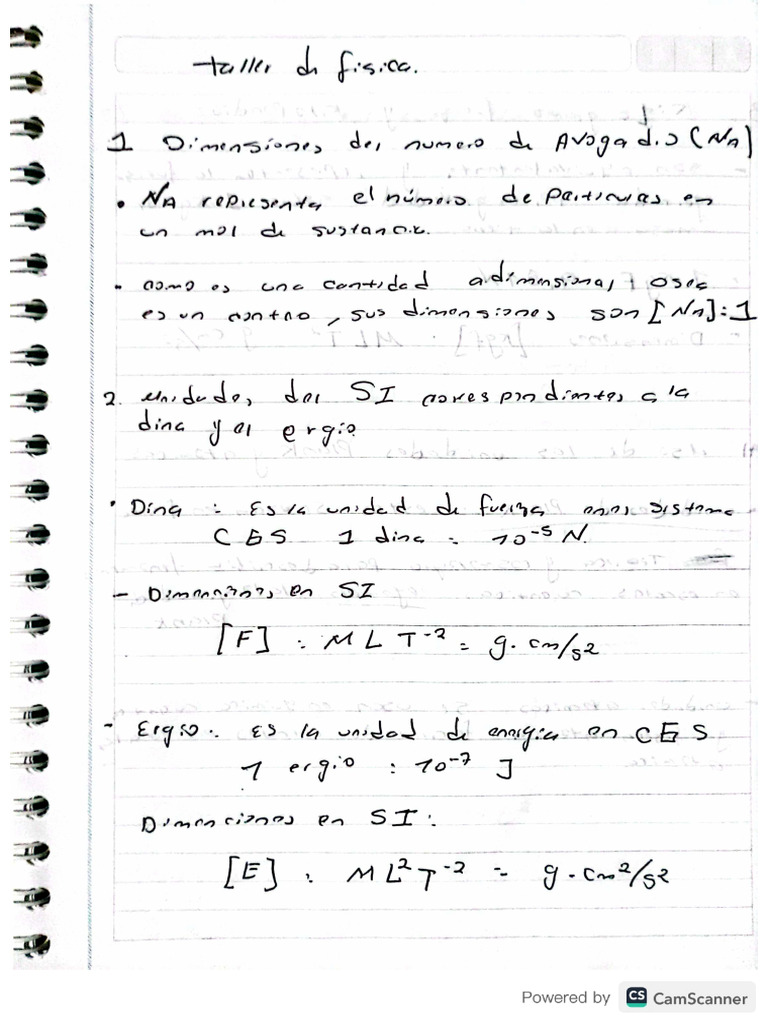 taller de fisica.
1 Dimensiones del numero de Avogadro (NA)
• NA representa el número de particulas en
un mol de sustancia.
- como es una cantidad adimensional, osea
es un conteo, sus dimensiones son [NA]: 1
2. Unidades del SI correspondientes a la
dina y el ergio
• Dina : Es la unidad de fuerza en el sistema
CES 1 dina = 10⁻⁵ N.
- Dimensiones en SI
[F] : M L T⁻² = g. cm/s2
- Ergio: Es la unidad de energia en CES
1 ergio : 10⁻⁷ J
Dimenciones en SI:
[E] : M L² T⁻² = g. cm²/s2
Powered by CS CamScanner